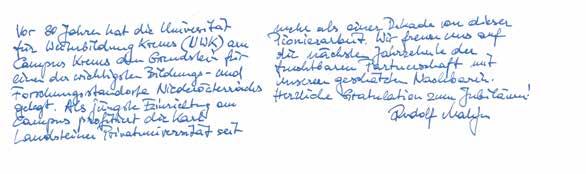 Vor 30 Jahren hat die Universität
für Weiterbildung Krems (UWK) am
Campus Krems den Grundstein für
einen der wichtigsten Bildungs- und
Forschungsstandorte Niederösterreichs
gelegt. Als jüngste Einrichtung am
Campus profitiert die Karl
Landsteiner Privatuniversität seit
mehr als einer Dekade von dieser
Pionierarbeit. Wir freuen uns auf
die nächsten Jahrzehnte der
fruchtbaren Partnerschaft mit
unseren geschätzten Nachbarn.
Herzliche Gratulation zum Jubiläum!
Rudolf Mallinger